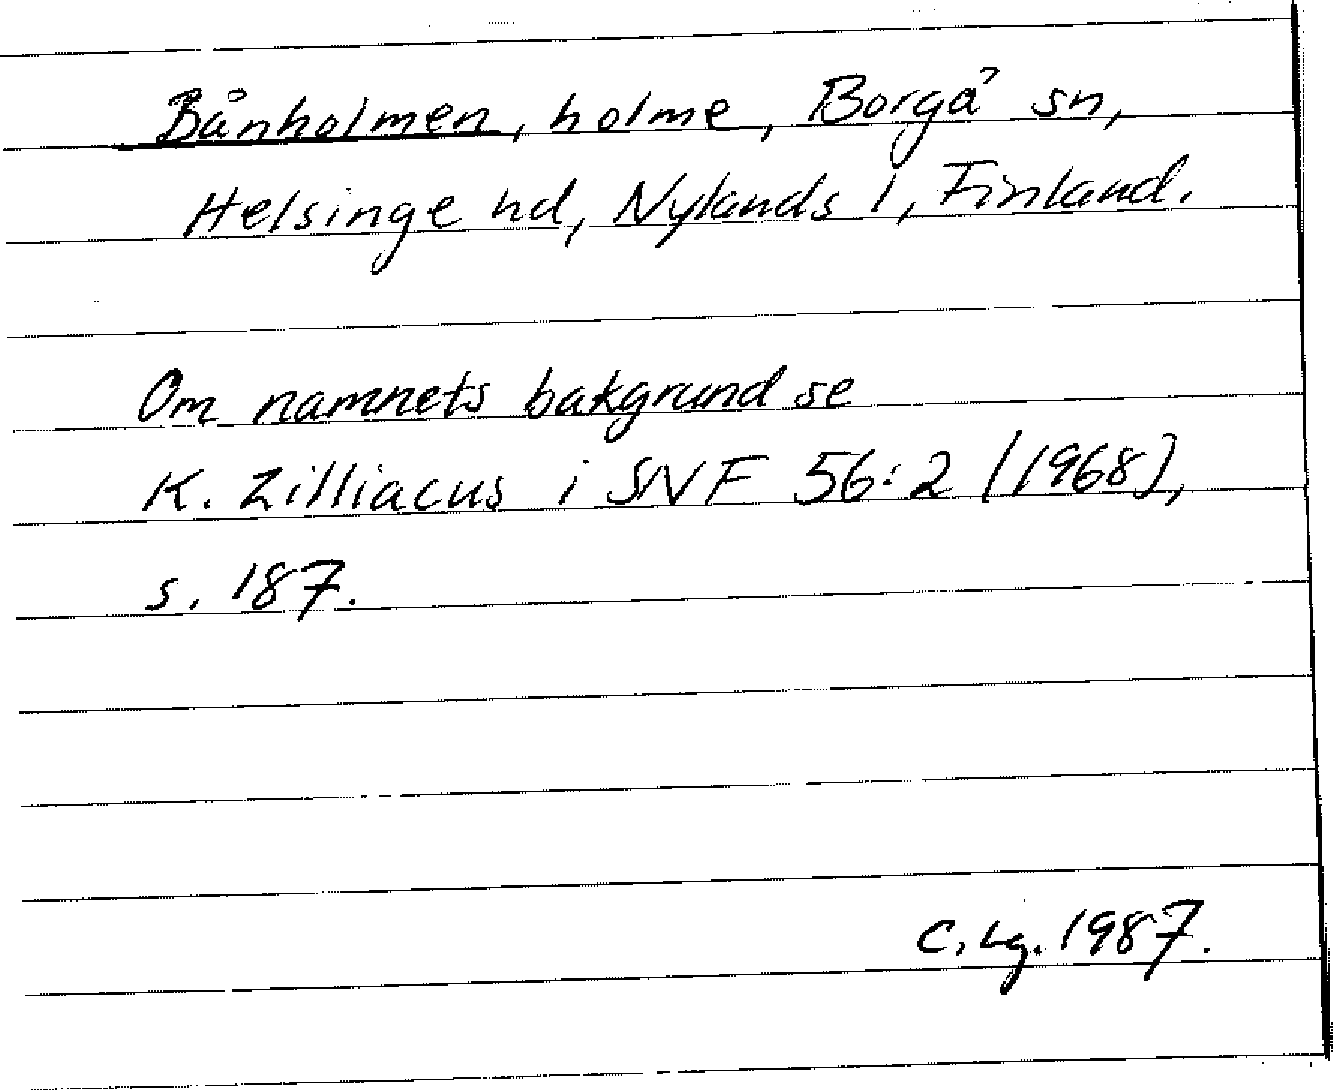 Bånholmen, holme, Borgå sn,
Helsinge hd, Nylands l, Finland.
Om namnets bakgrund se
K. Zilliacus i SNF 56:2 (1968),
s. 187.
C. Lg. 1987.